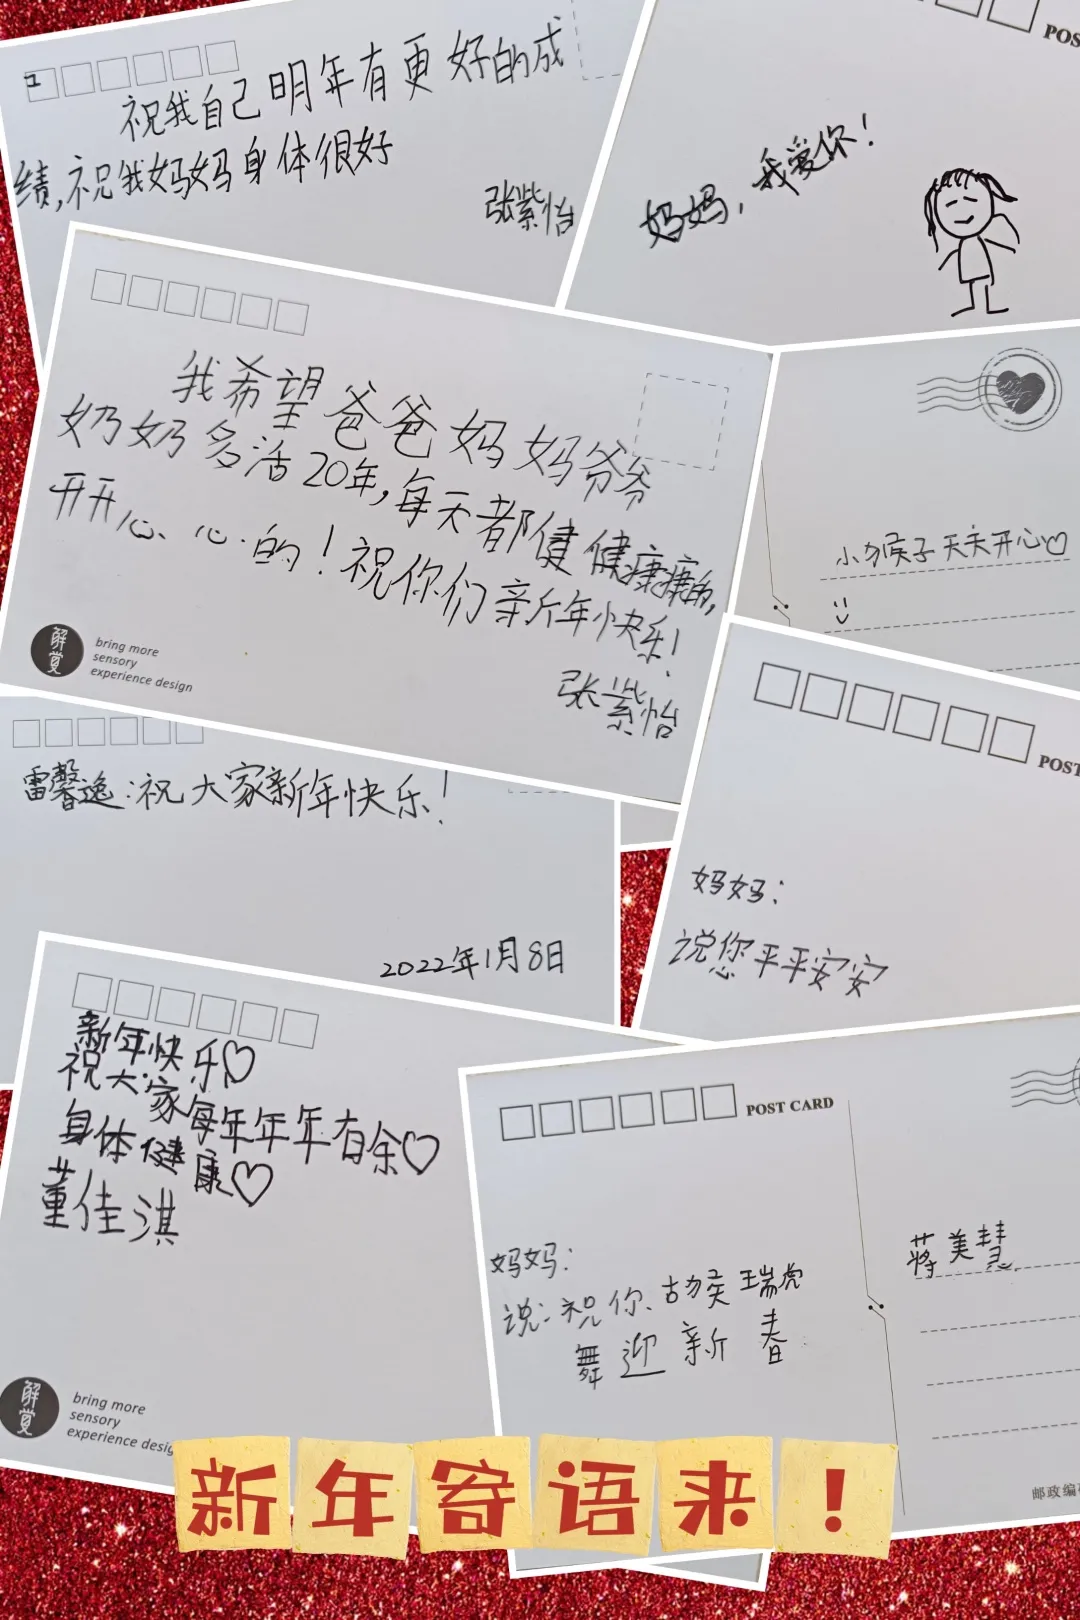 祝我自己明年有更好的成
绩,祝我妈妈身体很好
张紫怡
POS
妈妈,我爱你!
我希望爸爸妈妈爷爷
奶奶多活20年,每天都健健康康的,
开开心心的!祝你们新年快乐!
张紫怡
解觉
bring more
sensory
experience design
小猴子天天开心♡
雷馨逸:祝大家新年快乐!
2022年1月8日
POST
妈妈:
说您平平安安
新年快乐♡
祝大家每年年年有余♡
身体健康♡
董佳淇
解觉
bring more
sensory
experience desig
POST CARD
妈妈:
说:祝你、
瑞虎
舞迎新春
蒋美慧
邮政编
新年寄语来!